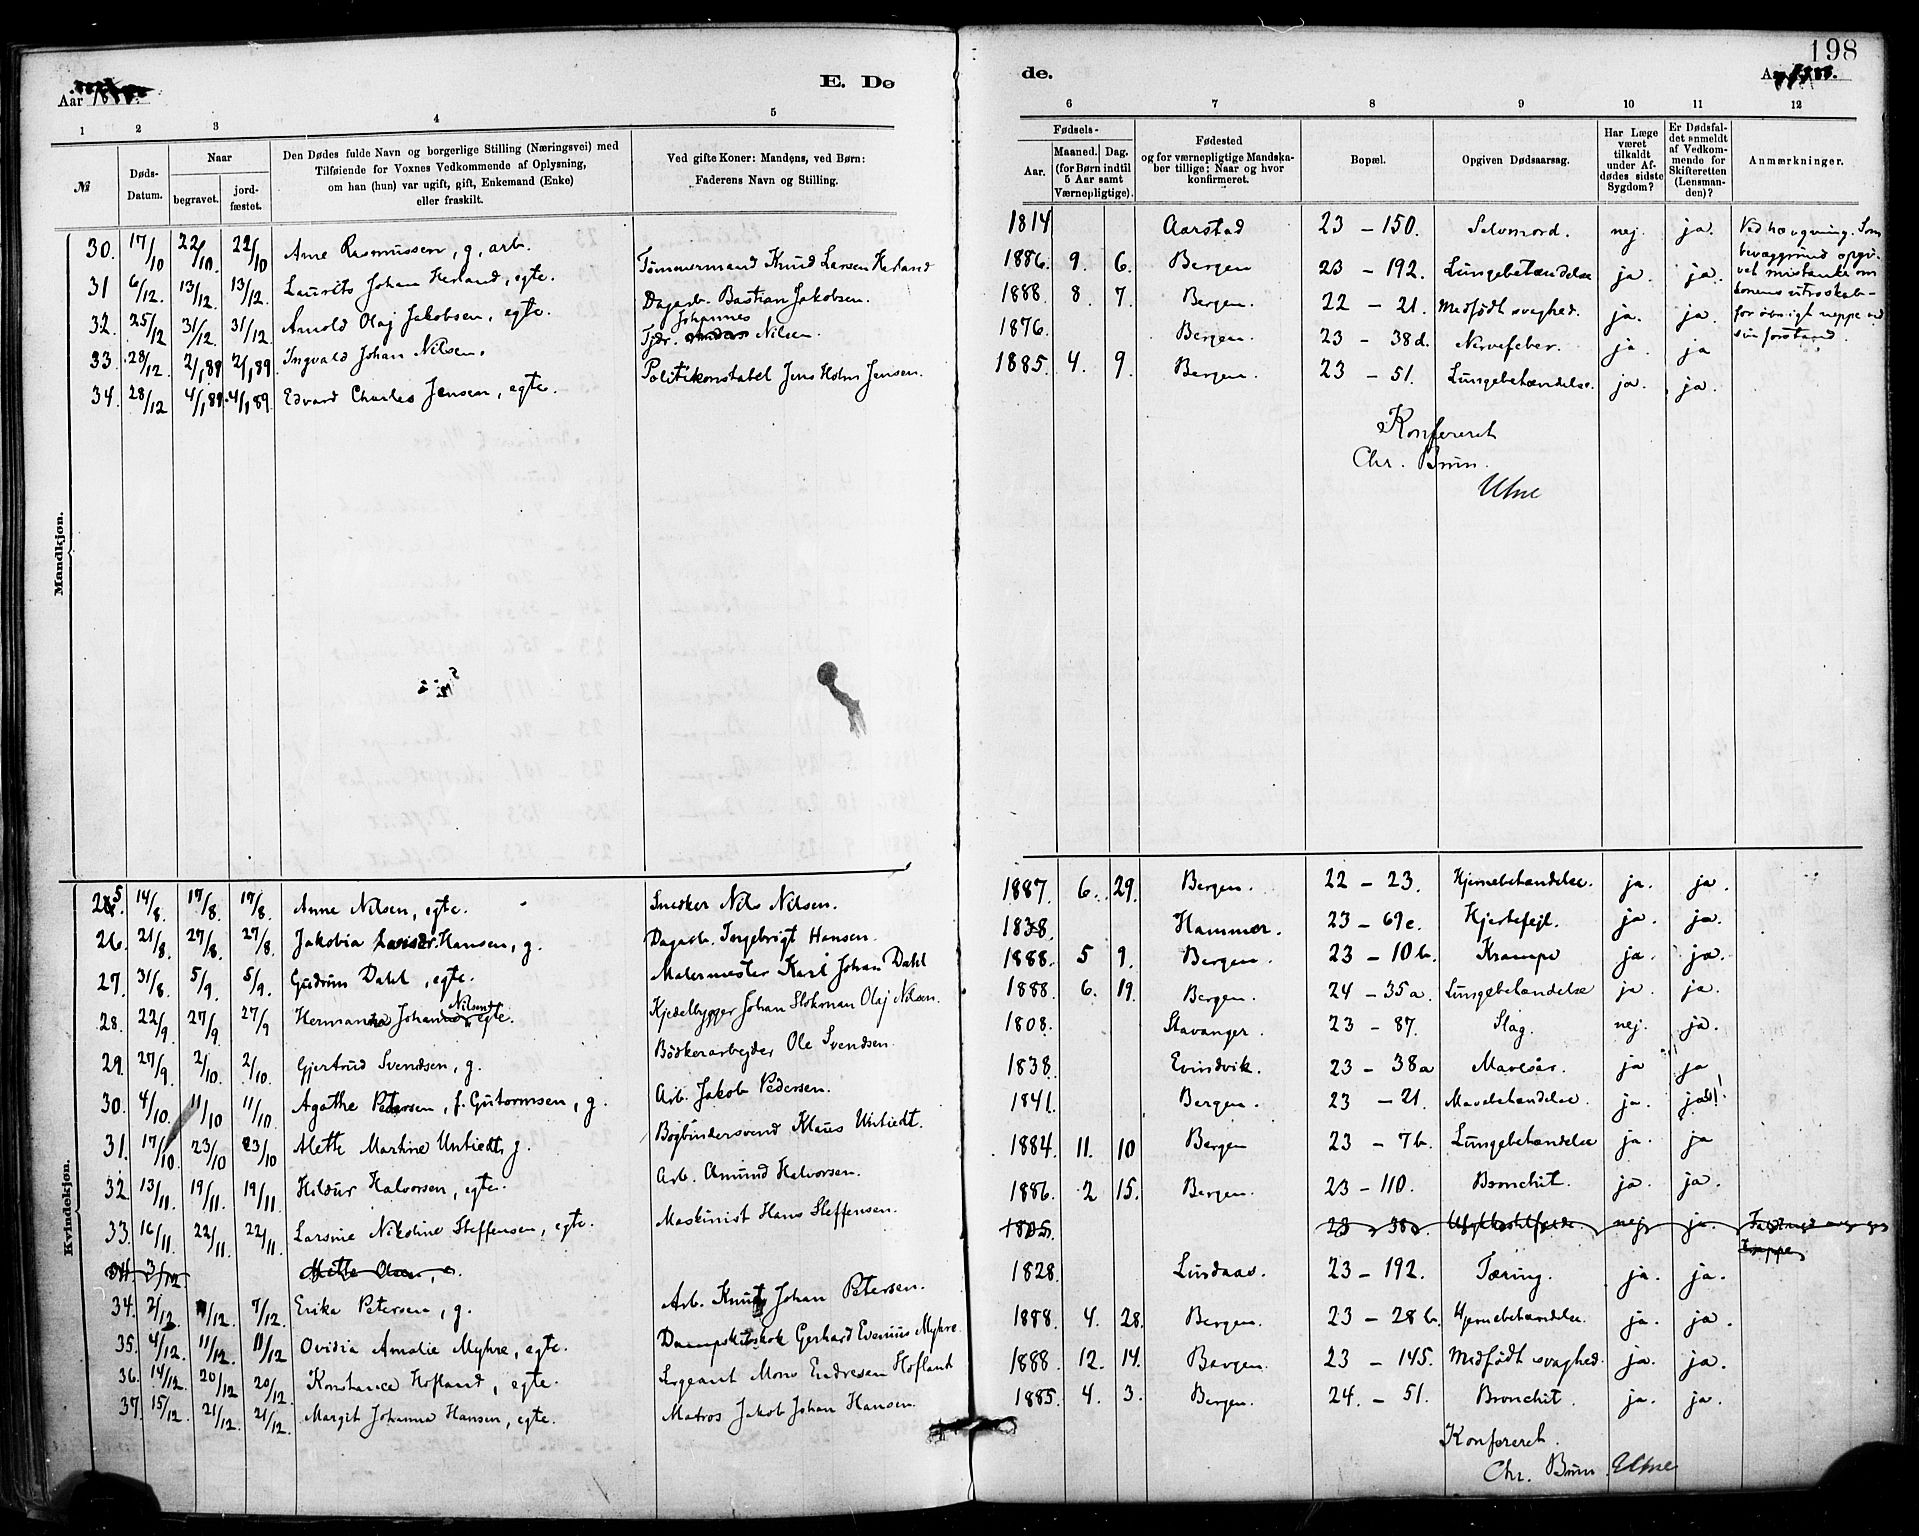 198
Aar E. Dø de.
1 2 3 4 5 6 7 8 9 10 11 12
№ Døds-Datum. Naar begravet. jordfæstet. Den Dødes fulde Navn og borgerlige Stilling (Næringsvei) med Tilføiende for Voxnes Vedkommende af Oplysning, om han (hun) var ugift, gift, Enkemand (Enke) eller fraskilt. Ved gifte Koner: Mandens, ved Børn: Faderens Navn og Stilling. Fødsels- Aar. Maaned. Dag. (for Børn indtil 5 Aar samt Værnepligtige). Fødested og for værnepligtige Mandskaber tillige: Naar og hvor konfirmeret. Bopæl. Opgiven Dødsaarsag. Har Læge været tilkaldt under Afdødes sidste Sygdom? Er Dødsfaldet anmeldt af Vedkommende for Skifteretten (Lensmanden)? Anmærkninger.
Mandkjøn.
30. 17/10 22/10 22/10 Arne Rasmussen, g, arb. 1814 Aarstad 23 – 150. Selvmord. nej. ja. Ved hængning. Som bevæggrund opgivet mistanke om konens utroskab – for øvrigt neppe ved sin forstand.
31 6/12. 13/12. 13/12. Laurits Johan Herland, egte. Tømmermand Knud Larsen Herland 1886. 9. 6. Bergen 23 – 192. Lungebetændelse ja. ja.
32. 25/12 31/12 31/12. Arnold Olaj Jakobsen, egte. Dagarb. Bastian Jakobsen. 1888. 8. 7. Bergen. 22 – 21. Medfødt svaghed. ja. ja.
33. 28/12. 2/1 89 2/1 89. Ingvald Johan Nilsen. Johannes Nilsen. 1876. Bergen. 23 – 38d. Nervefeber. ja ja
34. 28/12 4/1 89. 4/1 89. Edvard Charles Jensen, egte. Politikonstabel Jens Holm Jensen. 1885. 4. 9. Bergen. 23 – 51. Lungebetændelse. ja. ja.
Konfereret
Chr. Brun.
Utne
Kvindekjøn.
25. 14/8. 17/8. 17/8. Anne Nilsen, egte. Snedker Nils Nilsen. 1887. 6. 29. Bergen. 22 – 23. Hjernebetændelse. ja. ja.
26. 21/8. 27/8. 27/8 Jakobia Hansen, g. Dagarb. Ingebrigt Hansen. 1838. Hammer. 23 – 69e. Hjertefejl. ja. ja.
27. 31/8. 5/9. 5/9. Gudrun Dahl, egte. Malermester Karl Johan Dahl 1888. 5 9. Bergen. 23 – 10b. Krampe ja. ja.
28. 22/9 27/9 27/9 Hermanna Nilsen egte. Kjedelbygger Johan Olaj Nilsen. 1888. 6. 19. Bergen. 24 – 35a. Lungebetændelse ja. ja.
29. 27/9. 2/10. 2/10. Gjertrud Svendsen, g. Bødkerarbejder Ole Svendsen. 1808. Stavanger. 23 – 87. Slag. nej. ja.
30. 4/10. 11/10 11/10. Agathe Petersen, f. Gutormsen, g. Arb. Jakob Pedersen. 1838. Evindvik. 23 – 38a Mavesår. ja ja
31. 17/10. 23/10 23/10 Alette Martine Untiedt, g. Bogbindersvend Klaus Untiedt. 1841. Bergen. 23 – 21. Mavebetændelse. ja. ja
32 13/11. 19/11. 19/11 Hildur Halvorsen, egte. Arb. Amund Halvorsen. 1884. 11. 10 Bergen 23 – 7b. Lungebetændelse ja. ja
33. 16/11. 22/11. 22/11. Larsine Nikoline Steffensen, egte. Maskinist Hans Steffensen. 1886. 2 15. Bergen. 23 – 110. Bronchit. ja. ja.
34 3/12 Mette Olsen, e. 1805. 23 – 38 nej ja. trappe
34. 2/12. 7/12. 7/12. Erika Petersen, g. Arb. Knut Johan Petersen. 1828. Lindaas. 23 – 192. Tæring. ja. ja.
35. 4/12. 11/12. 11/12 Ovidia Amalie Myhre, egte. Dampskibskok Gerhard Evenius Myhre. 1888. 4. 28. Bergen. 23 – 28b. Hjernebetændelse. ja. ja
36. 14/12. 20/12 20/12. Konstance Hofland, egte. Sergeant Mons Endresen Hofland 1888. 12. 14. Bergen. 23 – 145. Medfødt svaghed. ja. ja.
37. 15/12. 21/12. 21/12. Margit Johanna Hansen, egte. Matros Jakob Johan Hansen. 1885. 4. 3. Bergen. 24. – 51. Bronchit. ja. ja.
Konfereret.
Chr. Brun. Utne